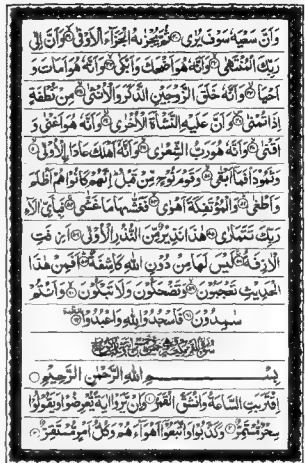 وَاَنَّ سَعْيَهٗ سَوْفَ يُرٰى ثُمَّ يُجْزٰىهُ الْجَزَآءَ الْاَوْفٰى وَاَنَّ اِلٰى
رَبِّكَ الْمُنْتَهٰى وَاَنَّهٗ هُوَ اَضْحَكَ وَاَبْكٰى وَاَنَّهٗ هُوَ اَمَاتَ وَ
اَحْيَا وَاَنَّهٗ خَلَقَ الزَّوْجَيْنِ الذَّكَرَ وَالْاُنْثٰى مِنْ نُّطْفَةٍ
اِذَا تُمْنٰى وَاَنَّ عَلَيْهِ النَّشْاَةَ الْاُخْرٰى وَاَنَّهٗ هُوَ اَغْنٰى وَ
اَقْنٰى وَاَنَّهٗ هُوَ رَبُّ الشِّعْرٰى وَاَنَّهٗٓ اَهْلَكَ عَادَا اۨلْاُوْلٰى
وَثَمُوْدَا۟ فَمَآ اَبْقٰى وَقَوْمَ نُوْحٍ مِّنْ قَبْلُ اِنَّهُمْ كَانُوْا هُمْ اَظْلَمَ
وَاَطْغٰى وَالْمُؤْتَفِكَةَ اَهْوٰى فَغَشّٰىهَا مَا غَشّٰى فَبِاَيِّ اٰلَآءِ
رَبِّكَ تَتَمَارٰى هٰذَا نَذِيْرٌ مِّنَ النُّذُرِ الْاُوْلٰى اَزِفَتِ
الْاٰزِفَةُ لَيْسَ لَهَا مِنْ دُوْنِ اللّٰهِ كَاشِفَةٌ اَفَمِنْ هٰذَا
الْحَدِيْثِ تَعْجَبُوْنَ وَتَضْحَكُوْنَ وَلَا تَبْكُوْنَ وَاَنْتُمْ
سٰمِدُوْنَ فَاسْجُدُوْا لِلّٰهِ وَاعْبُدُوْا
بِسْمِ اللّٰهِ الرَّحْمٰنِ الرَّحِيْمِ
اِقْتَرَبَتِ السَّاعَةُ وَانْشَقَّ الْقَمَرُ وَاِنْ يَّرَوْا اٰيَةً يُّعْرِضُوْا وَيَقُوْلُوْا
سِحْرٌ مُّسْتَمِرٌّ وَكَذَّبُوْا وَاتَّبَعُوْٓا اَهْوَآءَهُمْ وَكُلُّ اَمْرٍ مُّسْتَقِرٌّ